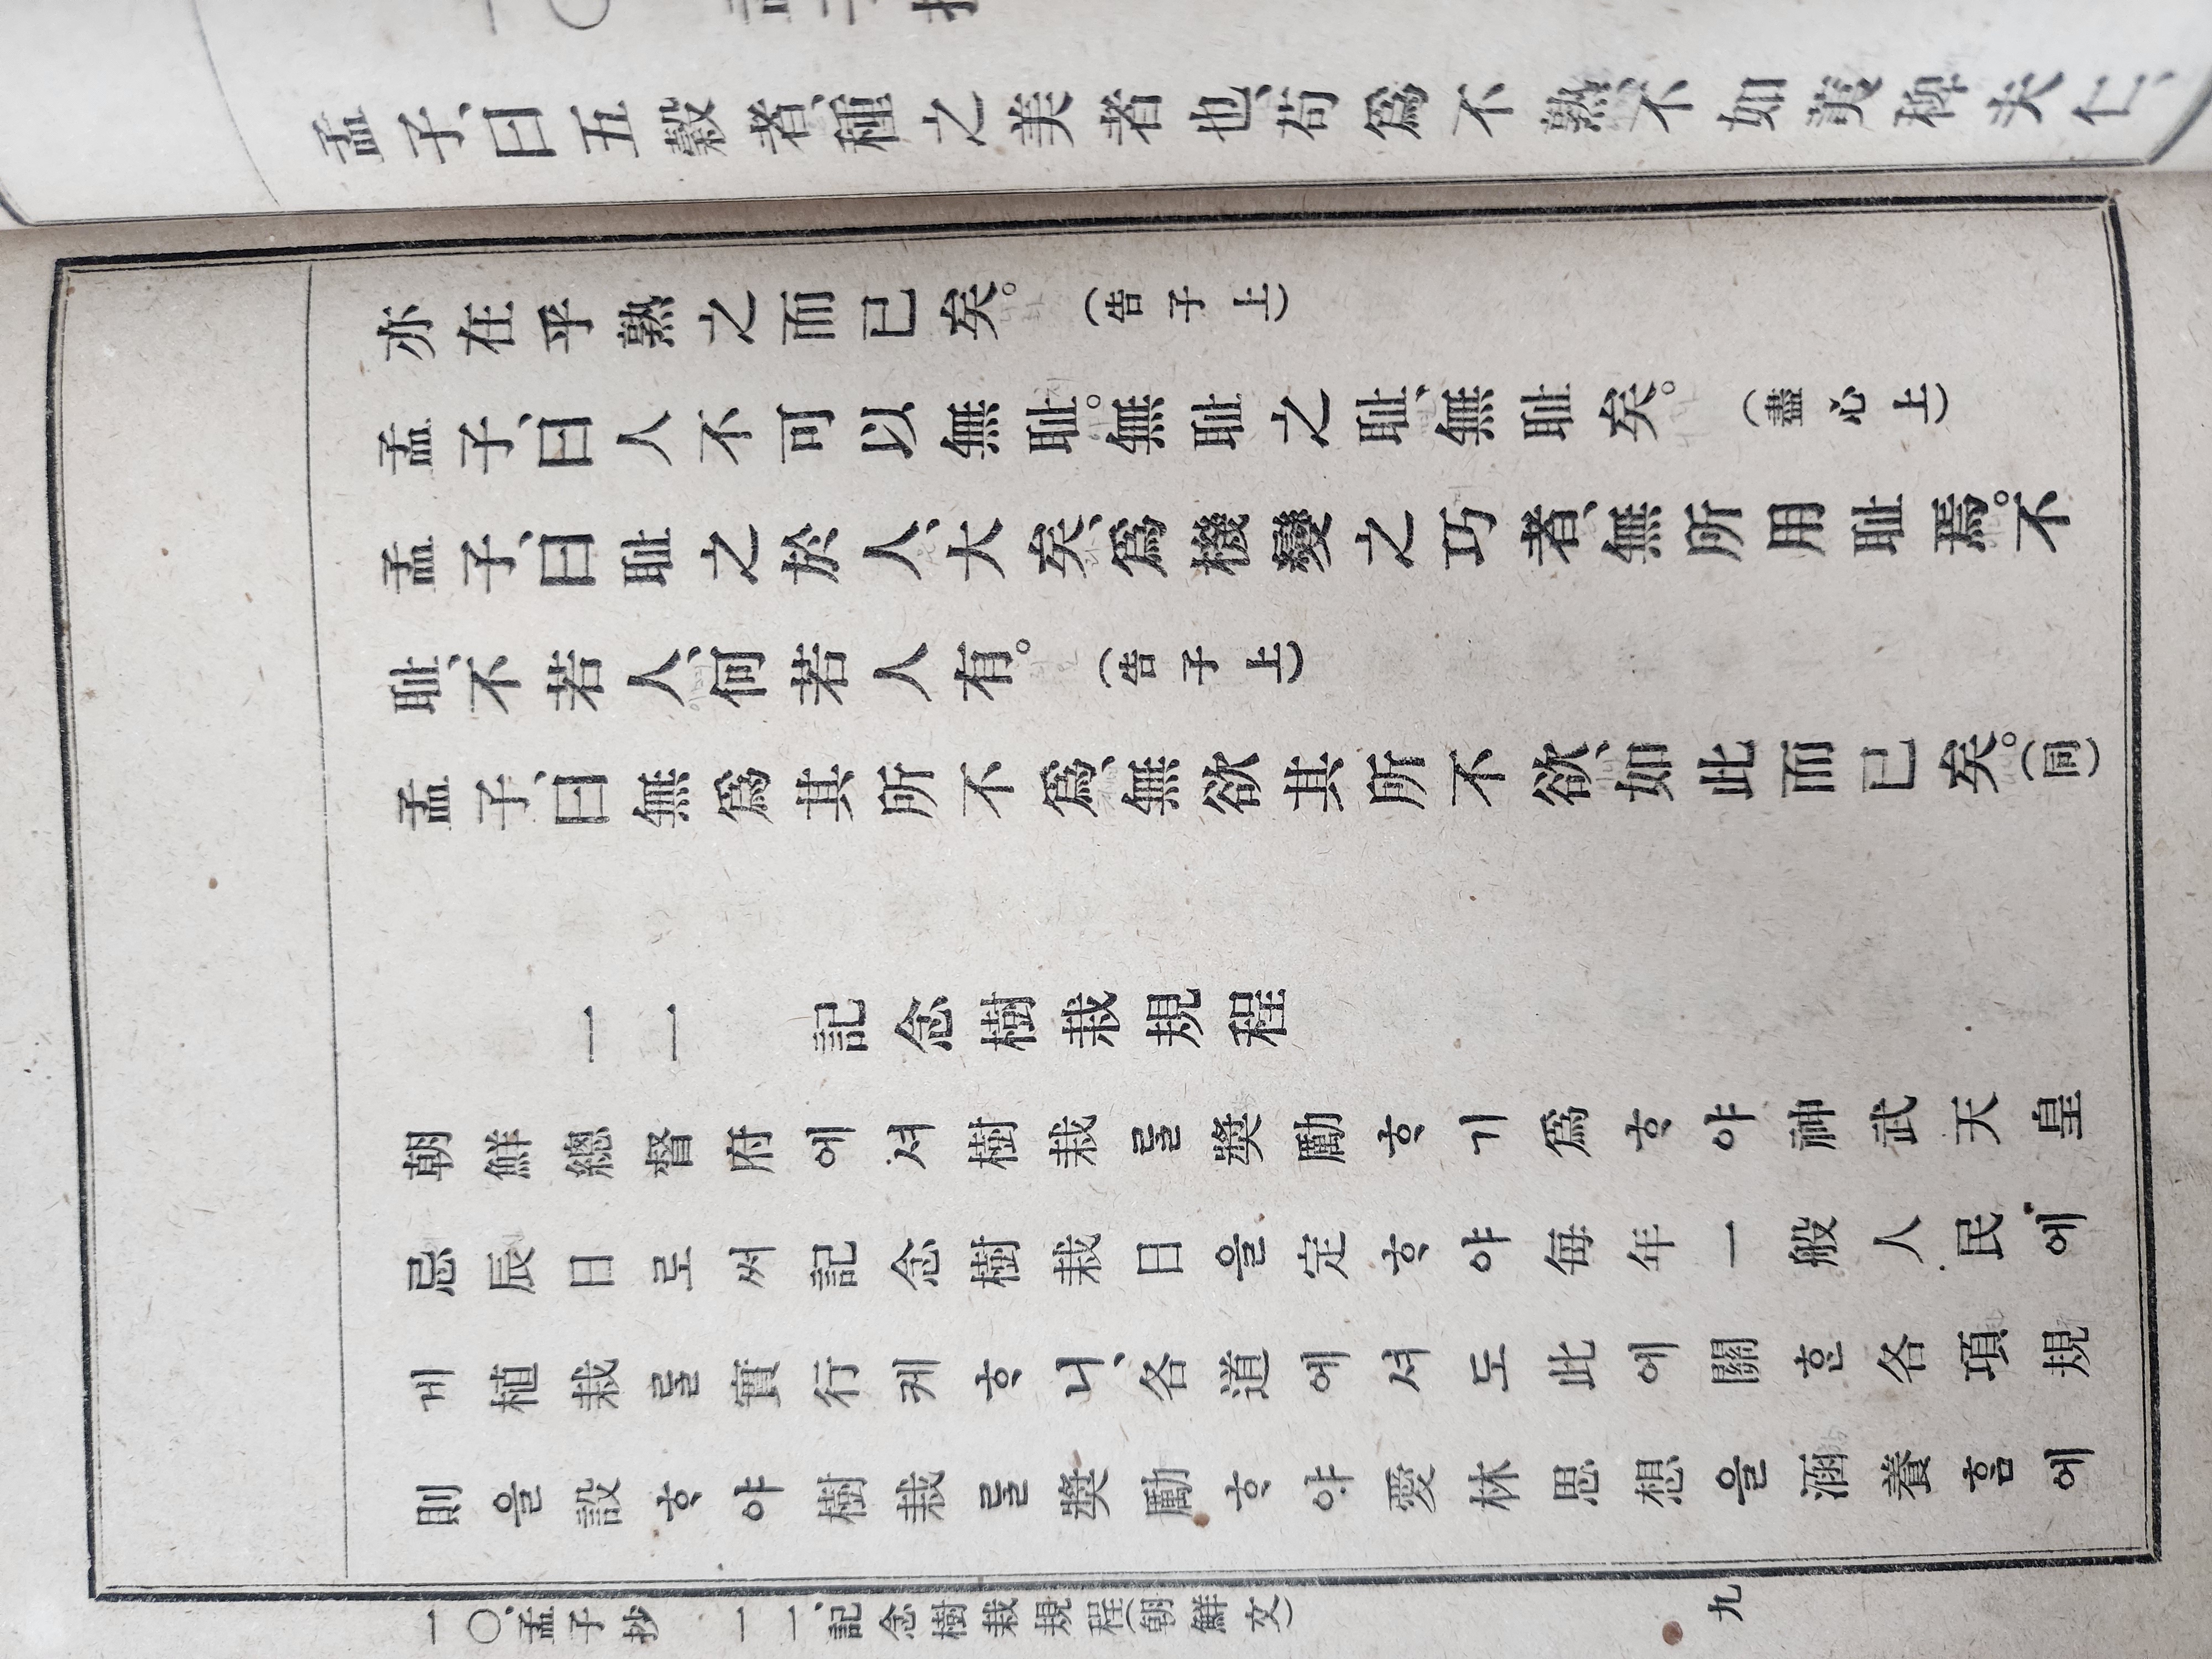 孟子、曰五穀者、種之美者也、苟爲不熟、不如荑稗、夫仁、
亦在乎熟之而已矣。(告子上)
孟子、曰人不可以無耻。無耻之耻、無耻矣。(盡心上)
孟子、曰耻之於人、大矣、爲機變之巧者、無所用耻焉。不
耻、不若人、何若人有。(告子上)
孟子、曰無爲其所不爲、無欲其所不欲、如此而已矣。(同)
一一 記念樹栽規程
朝鮮總督府에셔樹栽를奬勵ᄒᆞ기爲ᄒᆞ야神武天皇
忌辰日로써記念樹栽日을定ᄒᆞ야每年一般人民에
게植栽를實行케ᄒᆞ니、各道에셔도此에關ᄒᆞᆫ各項規
則을設ᄒᆞ야樹栽를奬勵ᄒᆞ야愛林思想을涵養ᄒᆞᆷ에
一〇、孟子抄 一一、記念樹栽規程(朝鮮文)
九